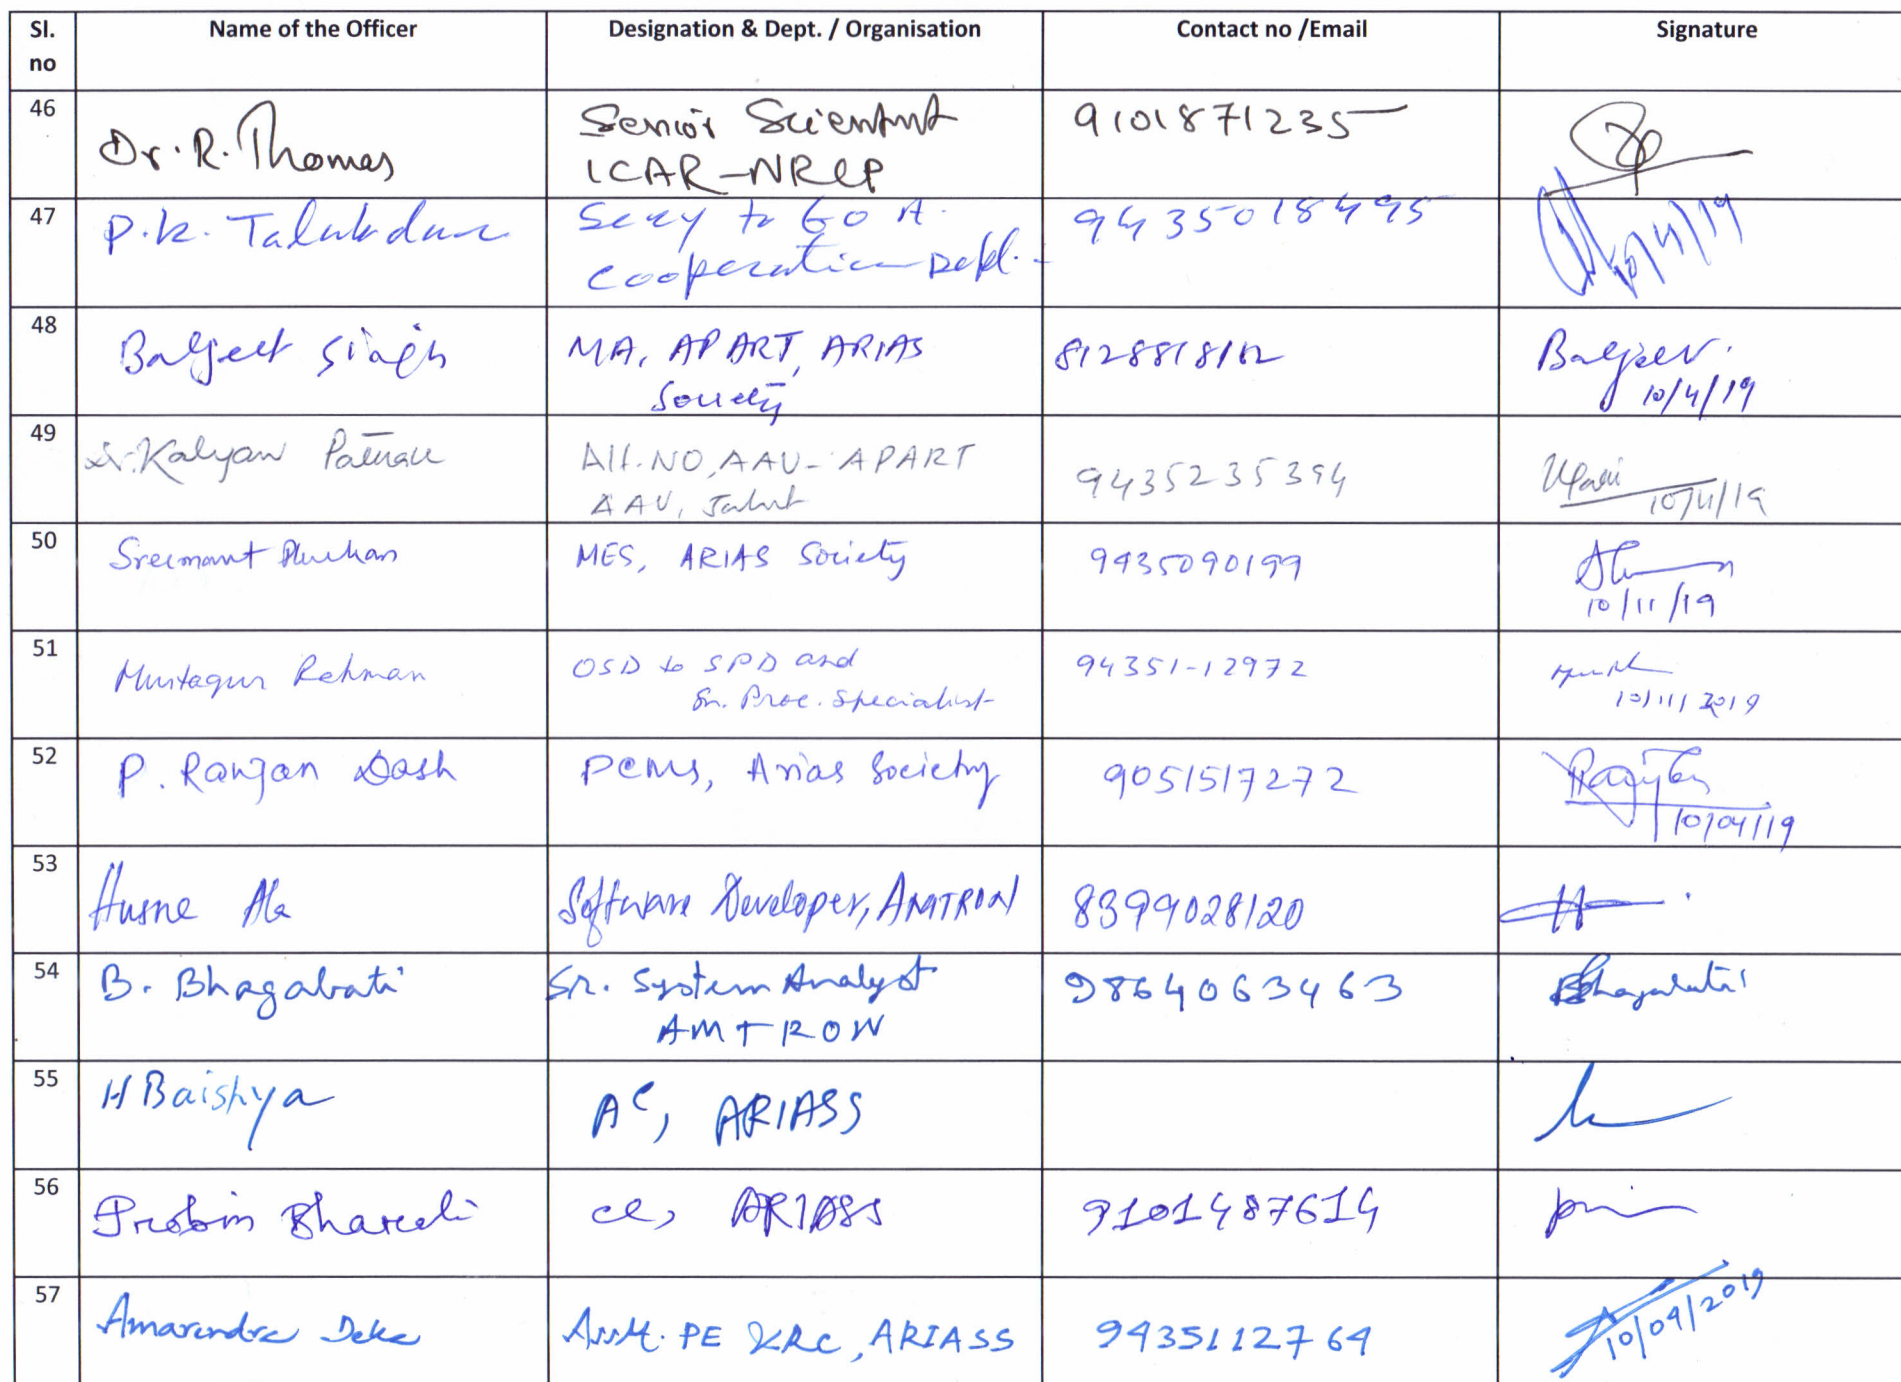 Sl. no
Name of the Officer
Designation & Dept. / Organisation
Contact no /Email
Signature
46
Dr. R. Thomas
Senior Scientist
ICAR-NRCP
9101871235
47
P.K. Talukdar
Secy to Go A.
Cooperation Deptt.
9435018495
48
Baljeet Singh
MA, APART, ARIAS
Society
8128818112
Baljeet.
10/4/19
49
Dr. Kalyan Pathak
NO, AAU- APART
AAU,
9435235394
10/4/19
50
Sreemant Phukan
MES, ARIAS Society
9435090199
10/11/19
51
Mustaqur Rehman
OSD to SPD and
Sr. Proc. Specialist
94351-12972
10/11/2019
52
P. Ranjan Dash
PCMS, Arias Society
9051517272
10/04/19
53
Husne Ala
Software Developer, AMTRON
8399028120
54
B. Bhagabati
Sr. System Analyst
AMTRON
9864063463
Bhagabati
55
H Baishya
AC, ARIASS
56
Probin Bharali
CC, ARIASS
9101487614
57
Amarendra Deka
Asstt. PE KRC, ARIASS
9435112764
10/04/2019